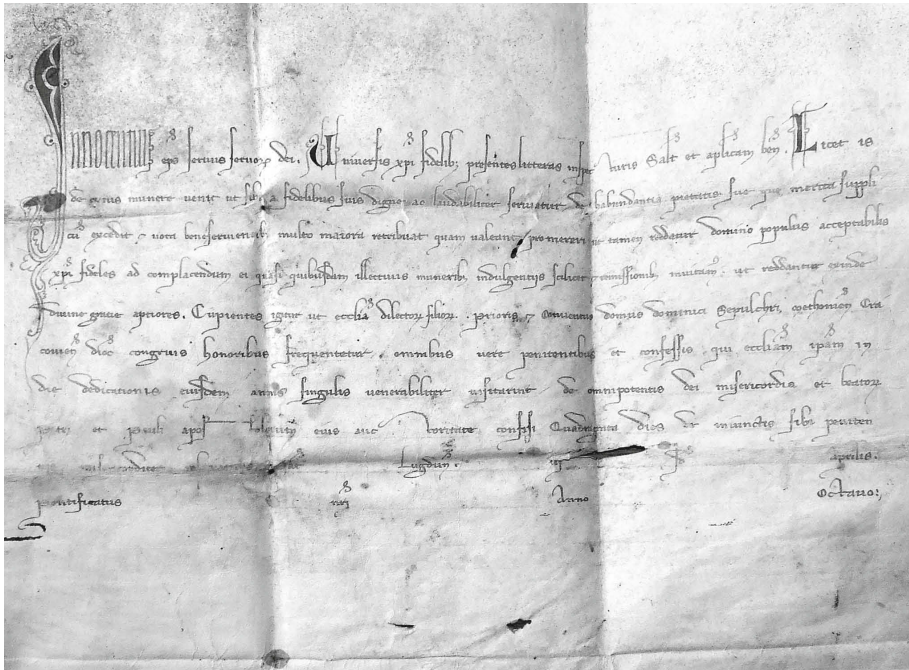 Innocentius eps servus servorum dei. Universis xpi fidelib; presentes litteras inspecturis Salt et aplicam ben. Licet is
de cuius munere venit ut sibi a fidelibus suis digne ac laudabiliter serviatur de habundantia pietatis sue que merita suppli
cum excedit et vota benservientib; multo maiora retribuat quam valeant promereri tamen reddere domino populum acceptabilem
xpi fideles ad complacendum ei quasi quibusdam illectivis muneribus indulgentiis scilicet remissionib; invitamus ut reddantur exinde
divine gratie aptiores. Cupientes igitur ut ecclia dilector filior. Prioris et Conventus domus dominici Sepulchri, Cra
covien dioc congruis honoribus frequentetur. omnibus vere penitentibus et confessis qui eccliam ipam in
die dedicationis eiusdem annis singulis venerabiliter visitarint de omnipotentis dei misericordia et beatorum
Petri et Pauli apostolorum eius auctoritate confisi Quadraginta dies de iniunctis sibi peniten
misericorditer Lugdun. aprilis.
Pontificatus nri Anno Octavo:,